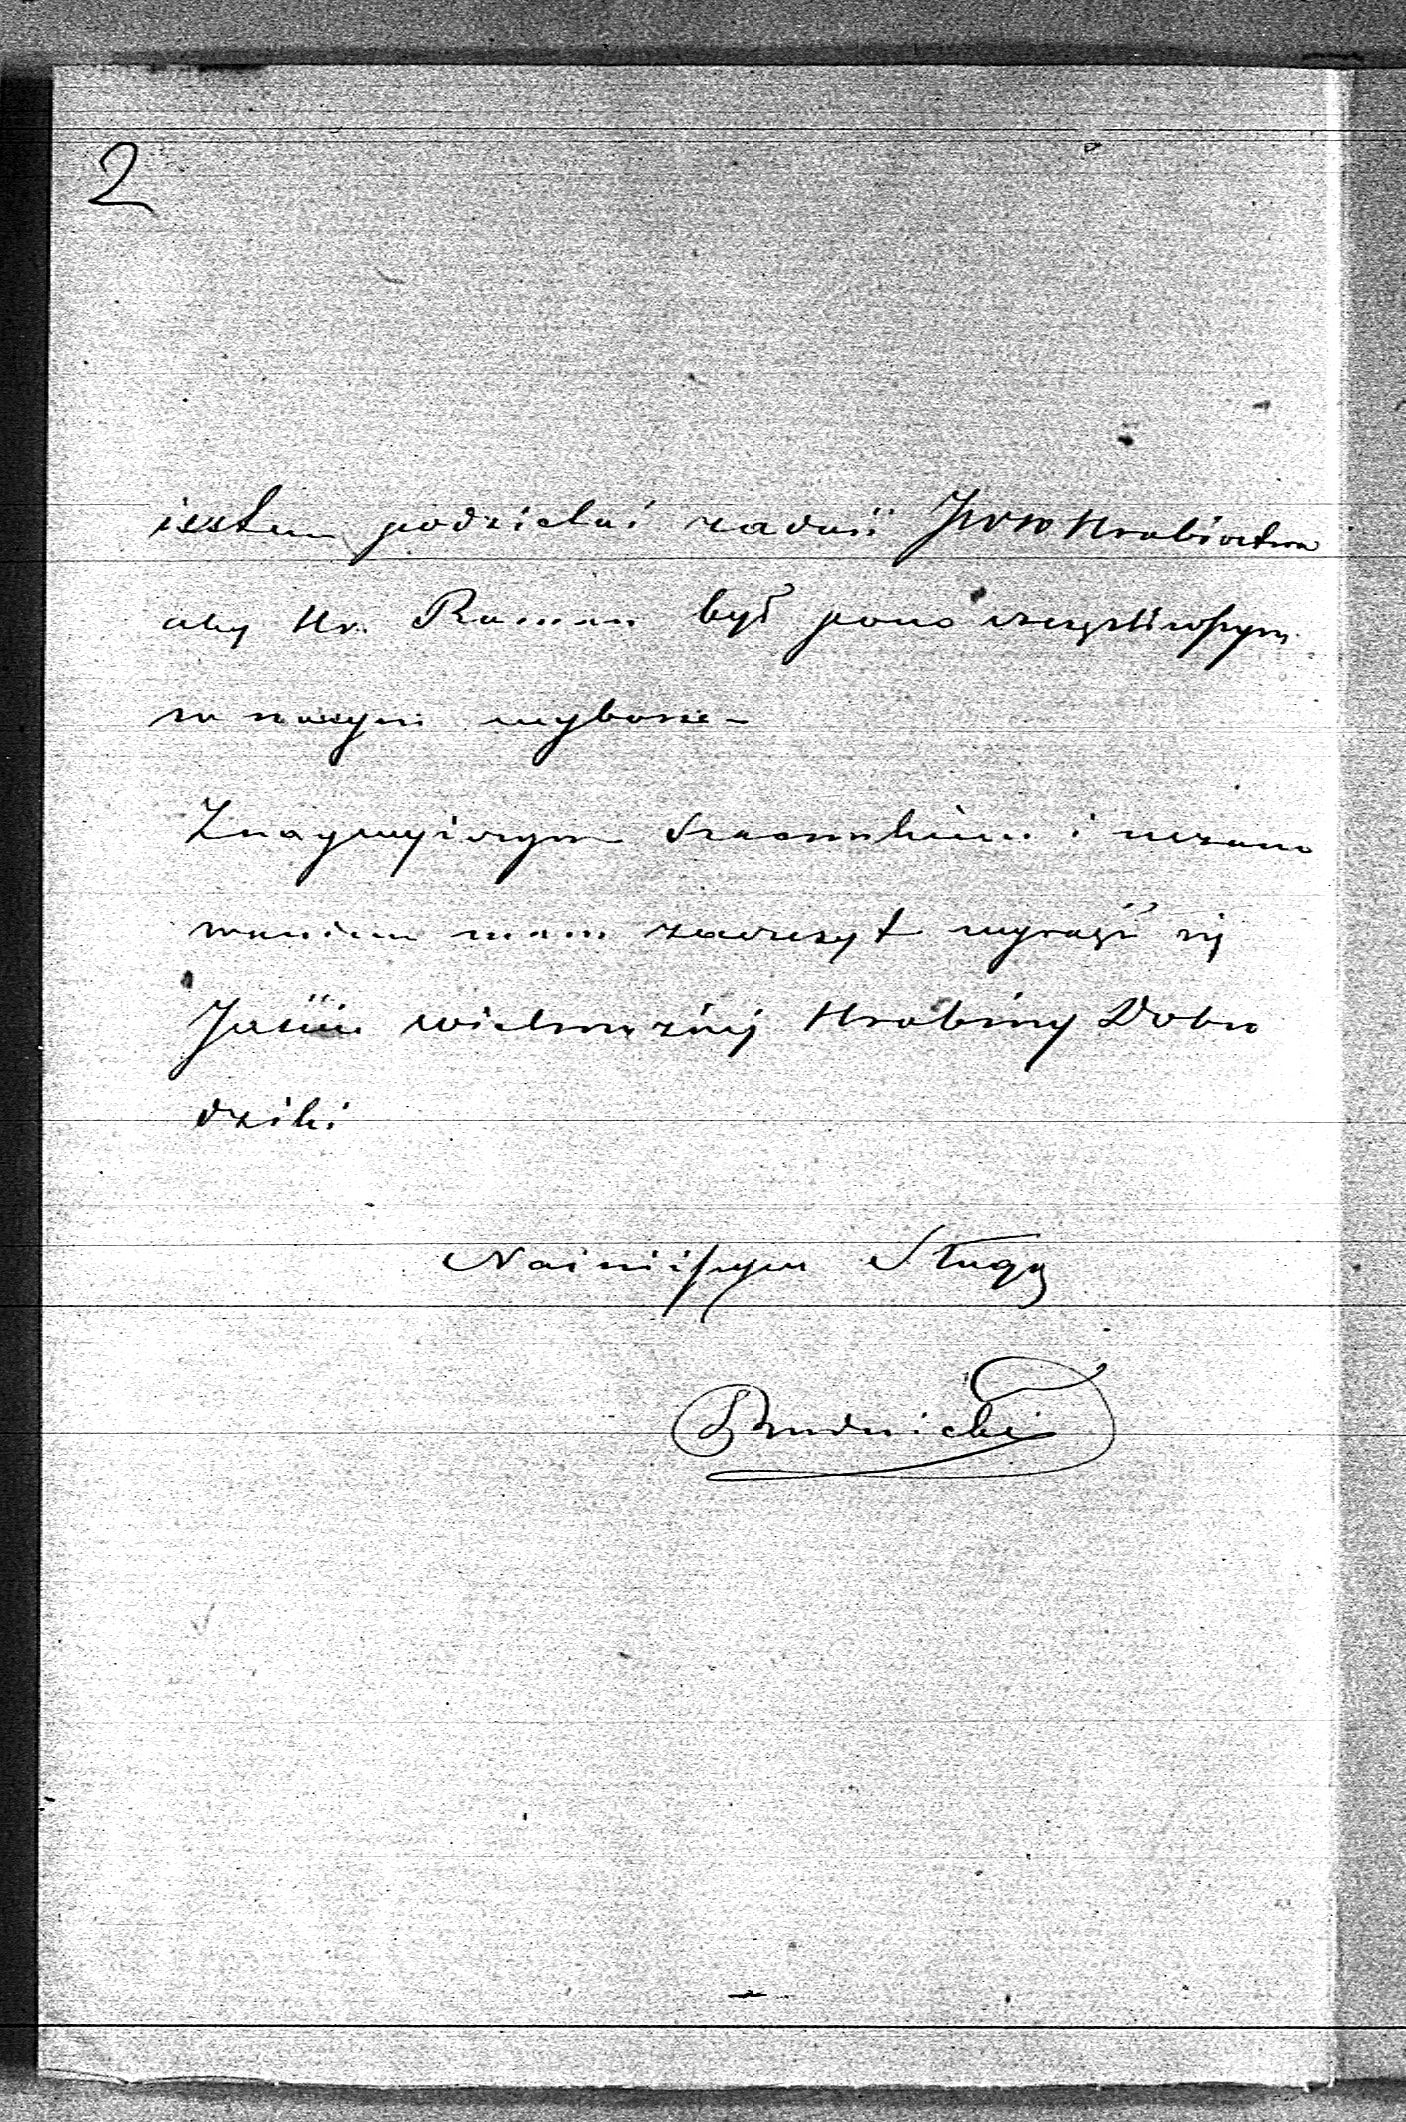 2
iestem podzielać radość JWW Hrabiostwa
aby Hr. Roman był
w naszym wyborze -
Z naywyższym szacunkiem i uszano
waniem mam zaszczyt wyrazić się
Jaśnie wielmożnej Hrabiny Dobro
dziki
Nainiższym Sługą
Rudnicki